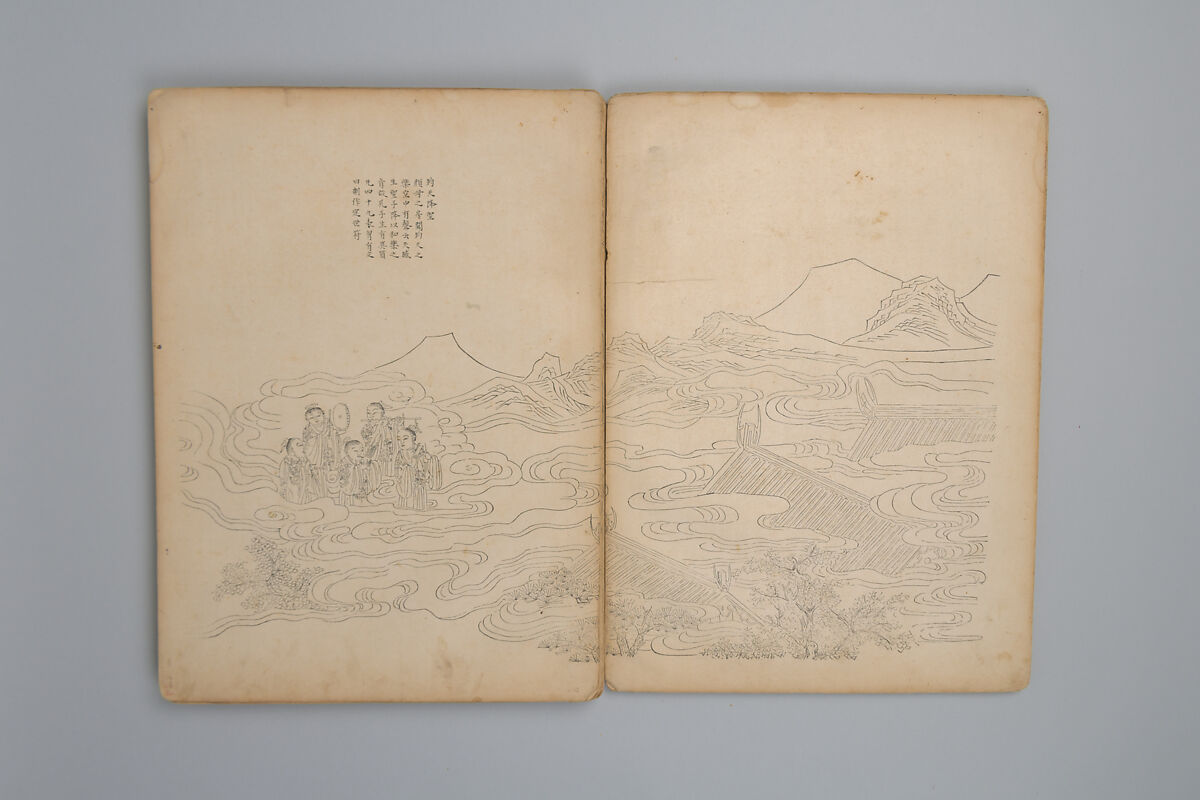 鈞天降聖
顏母之房聞鈞天之
樂空中有聲云天感
生聖子降以和樂之
音故孔子生有異質
凡四十九表胷有文
曰制作定世符